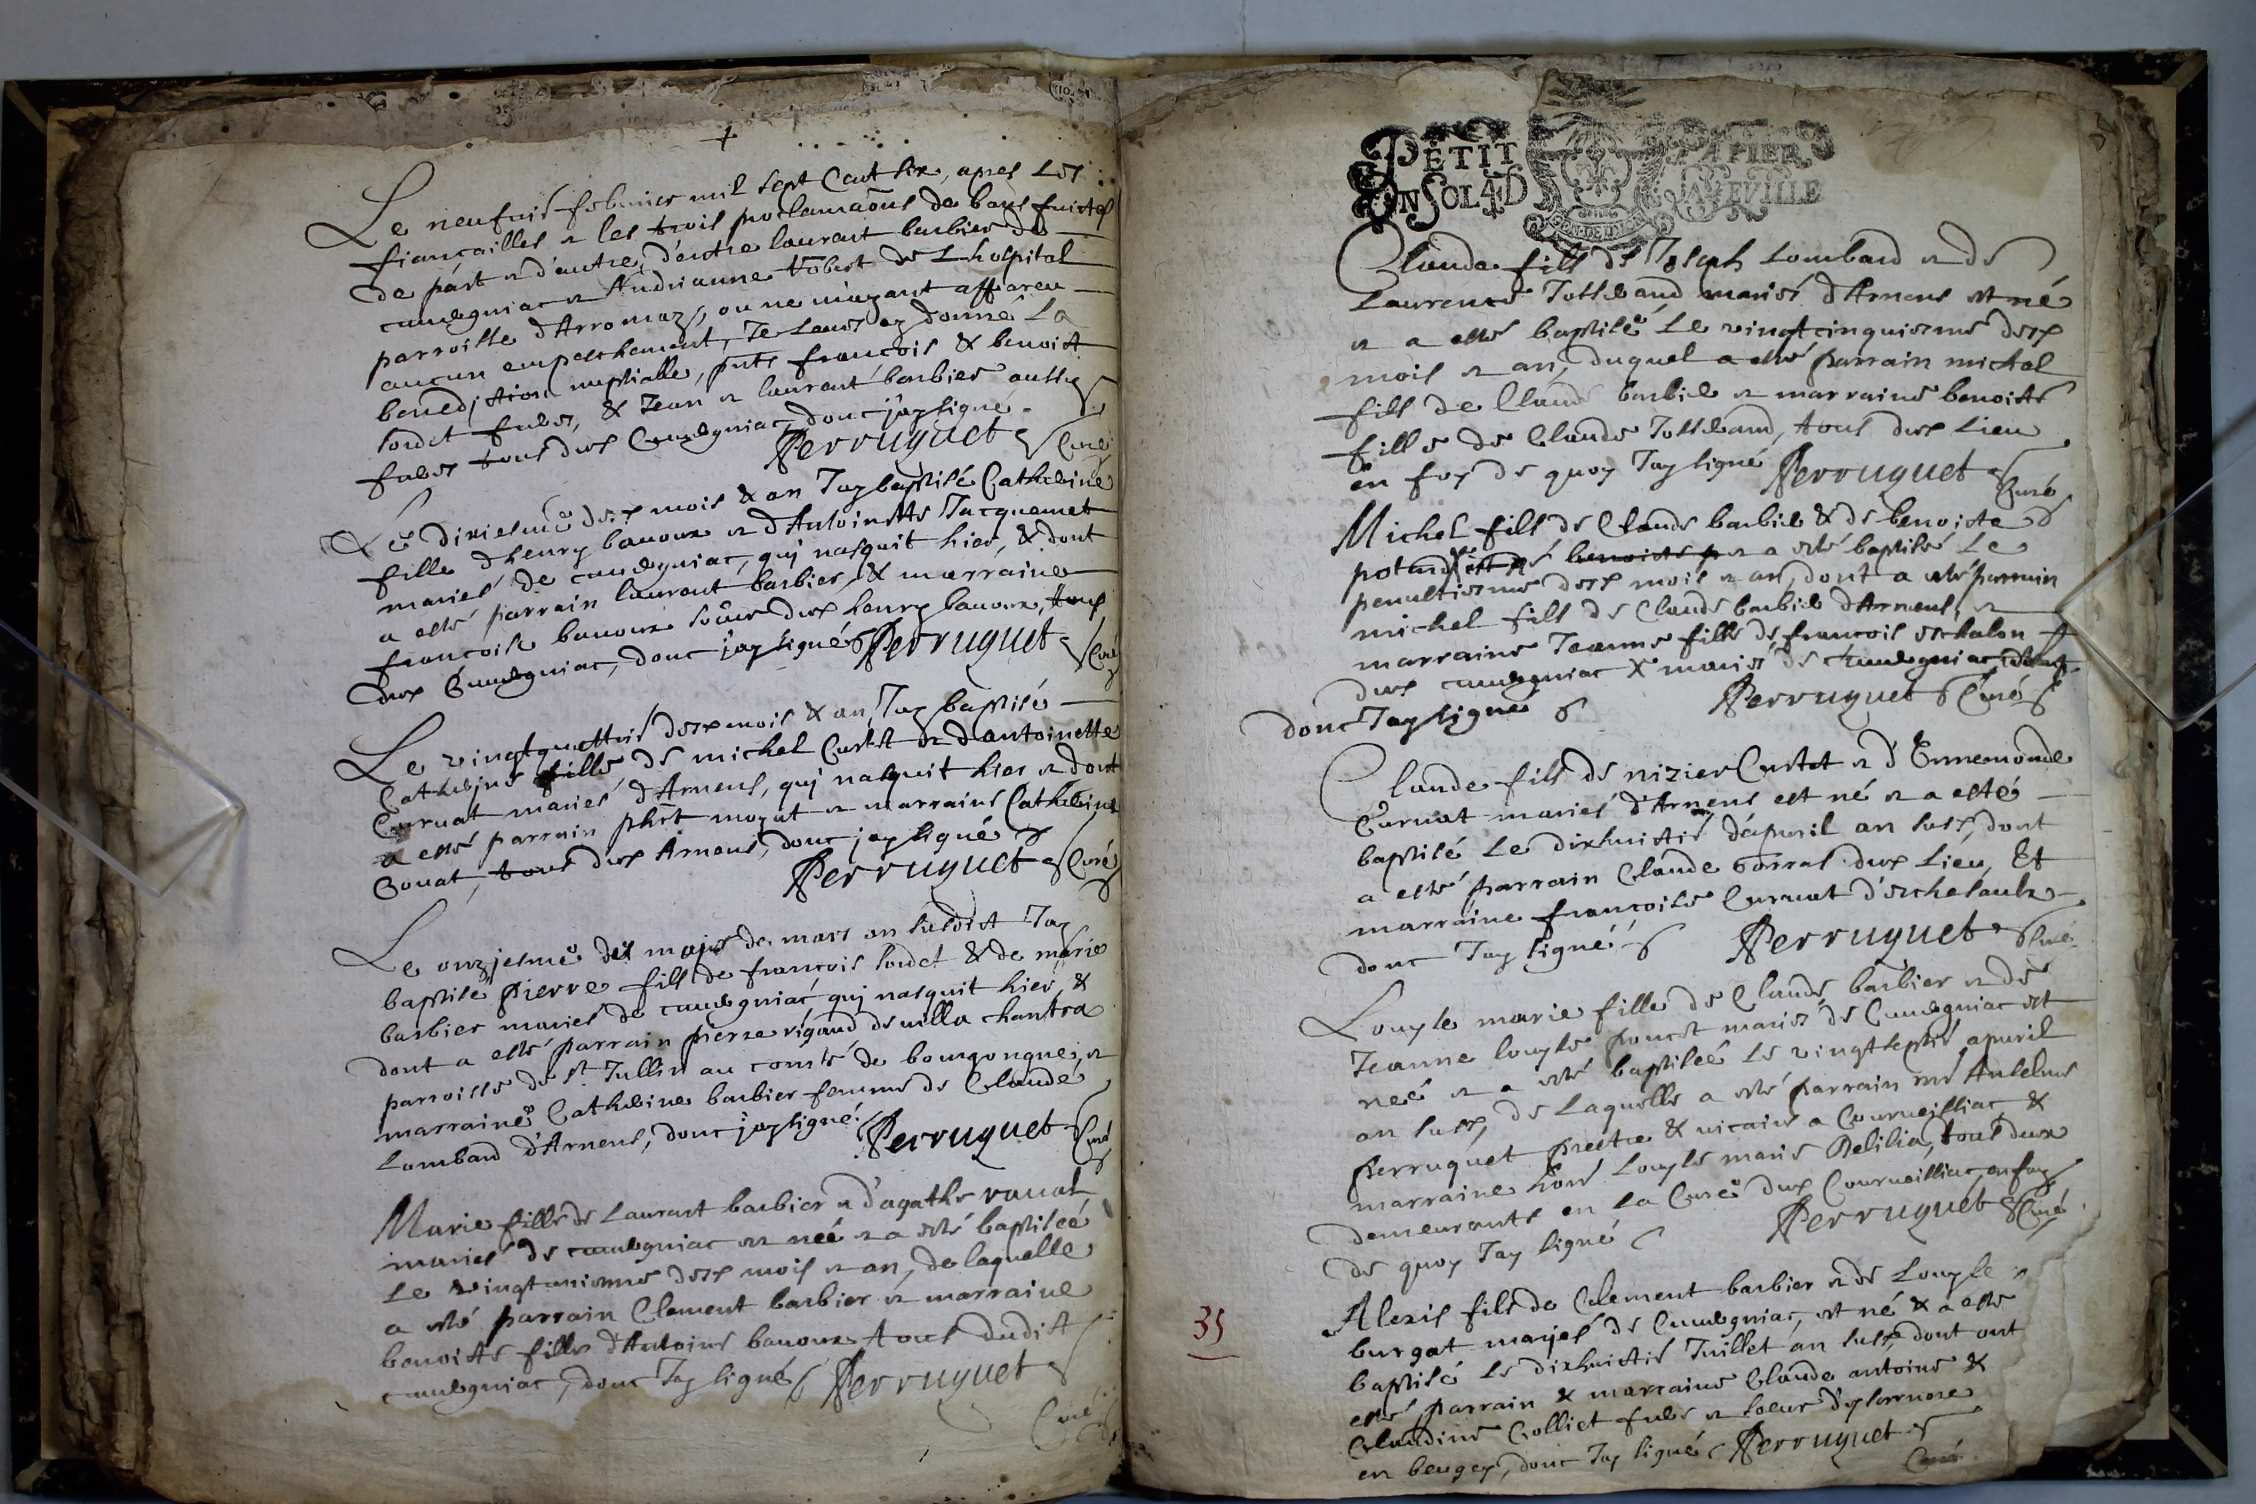 Le neufvie febvrier mil sept Cent six, apres les
fiançailles & les trois proclamaõns de bans faictes
de part & d'autre, d'entre laurent barbier de
cuuegniac & Andrianne Vobert de L hospital
parroisse d'Arromaz, ou ne m'ayant appareu
aucun empeschement, Je Leurs ay donné La
benediction nuptialle, pnts francois & benoist
sordet freres, & Jean & laurent barbier aussy
freres tous dud Cuuegniac, donc j'ay signé
Perruquet Curé
Le dixiesme desd mois & an J'ay baptisé Catherine
fille d'henry bauoux & d'Antoinette Jacquemet
mariés de cuuegniac, qui nasquit hier, & dont
a esté parrain laurent barbier, & marraine
francoise bauoux soeur dud henry bauoux, tous
dud Cuuegniac, donc j'ay signé Perruquet Curé
Le vingtquattrie desd mois & an, J'ay baptisé
Catherine fille de michel Curtet & d'antoinette
Curuat mariés d'Arnens, qui nasquit hier & dont
a esté parrain phlrt moyat & marraine Catherine
Gouat, tous dud Arnens, donc j'ay signé
Perruquet Curé
Le onzjesme des mojs de mars an susdict J'ay
baptisé pierre fils de francois sordet & de marie
barbier mariés de cuuegniac qui nasquit hier, &
dont a esté parrain pierre rigaud de villa chantra
parroisse de st Jullin au comté de bourgongne, &
marraine Catherine barbier femme de Claude
Lombard d'Arnens, donc j'ay signé Perruquet Curé
Marie fille de Laurent barbier & d'agathe rauat
mariés de cuuegniac est née & a esté baptisée
Le vingtuniesme desd mois & an, de laquelle
a esté parrain Clement barbier & marraine
benoiste fille d'Antoine bauoux tous dudict
cuuegniac, donc J'ay signé Perruquet
Curé
PETIT PAPIER
UN SOL 4 D LA FEUILLE
Claude fils de Joseph Lombard & de
Laurence Josserand mariés d'Arnens est né
& a esté baptisé Le vingtcinquiesme desd
mois & an, duquel a esté parrain michel
fils de Claude barbier & marraine benoiste
fille de Claude Josserand, tous dud Lieu
en foy de quoy J'ay signé Perruquet
Curé
Michel fils de Claude barbier & de benoiste
potard est né benoiste p & a esté baptisé Le
penultiesme desd mois & an, dont a esté parrain
michel fils de Claude barbier d'Arnens, &
marraine Jeanne fille de francois eschalon
dud cuuegniac X mariés de cuuegniac
donc J'ay signé Perruquet Curé
Claude fils de nizier Curtet & d'Ennemonde
Curuat mariés d'Arnens est né & a esté
baptisé Le dixhuictie d'apuril an susd, dont
a esté parrain Claude borral dud Lieu, Et
marraine francoise Curuat d'eschesaulx
donc J'ay signé Perruquet Curé
Louyse marie fille de Claude barbier & de
Jeanne louyse poncet mariés de Cuuegniac est
née & a esté baptisée Le vingtseptie apuril
an susd, de Laquelle a esté parrain mre Antelme
Perruquet prestre & vicaire a Corueilliac, &
marraine hon Louyse marie Delilia, tous deux
demeurants en la Cure dud Corueilliac, en foy
de quoy J'ay signé Perruquet Curé
35
Alexis fils de Clement barbier & de Louyse
burgat marjés de Cuuegniac, est né & a esté
baptisé Le dixhuictie Juillet an susd, dont ont
esté parrain & marraine Claude antoine &
Claudine Colliet frere & soeur d'ysernore
en beugey, donc J'ay signé Perruquet
Curé